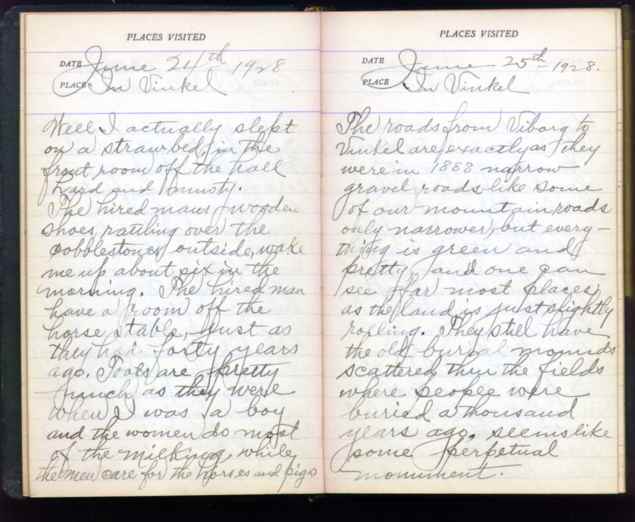 PLACES VISITED
DATE June 24th 1928
PLACE In Vinkel
Well I actually slept
on a straw bed, in the
front room off the hall
hard and musty.
The hired mans wooden
shoes, rattling over the
cobblestones outside, wake
me up about six in the
morning. The hired man
have a room off the
horse stable, just as
they had forty years
ago. are pretty
much as they were
when I was a boy
and the women do most
of the milking, while
the men care for the horses and pigs
PLACES VISITED
DATE June 25th 1928.
PLACE In Vinkel
The roads from Viborg to
Vinkel are exactly as they
were in 1888 narrow
gravel roads like some
of our mountain roads
only narrower, but every-
thing is green and
pretty, and one can
see far most places,
as the land is just slightly
rolling. They still have
the old burial mounds
scattered thru the fields
where people were
buried a thousand
years ago. seems like
some perpetual
monument.